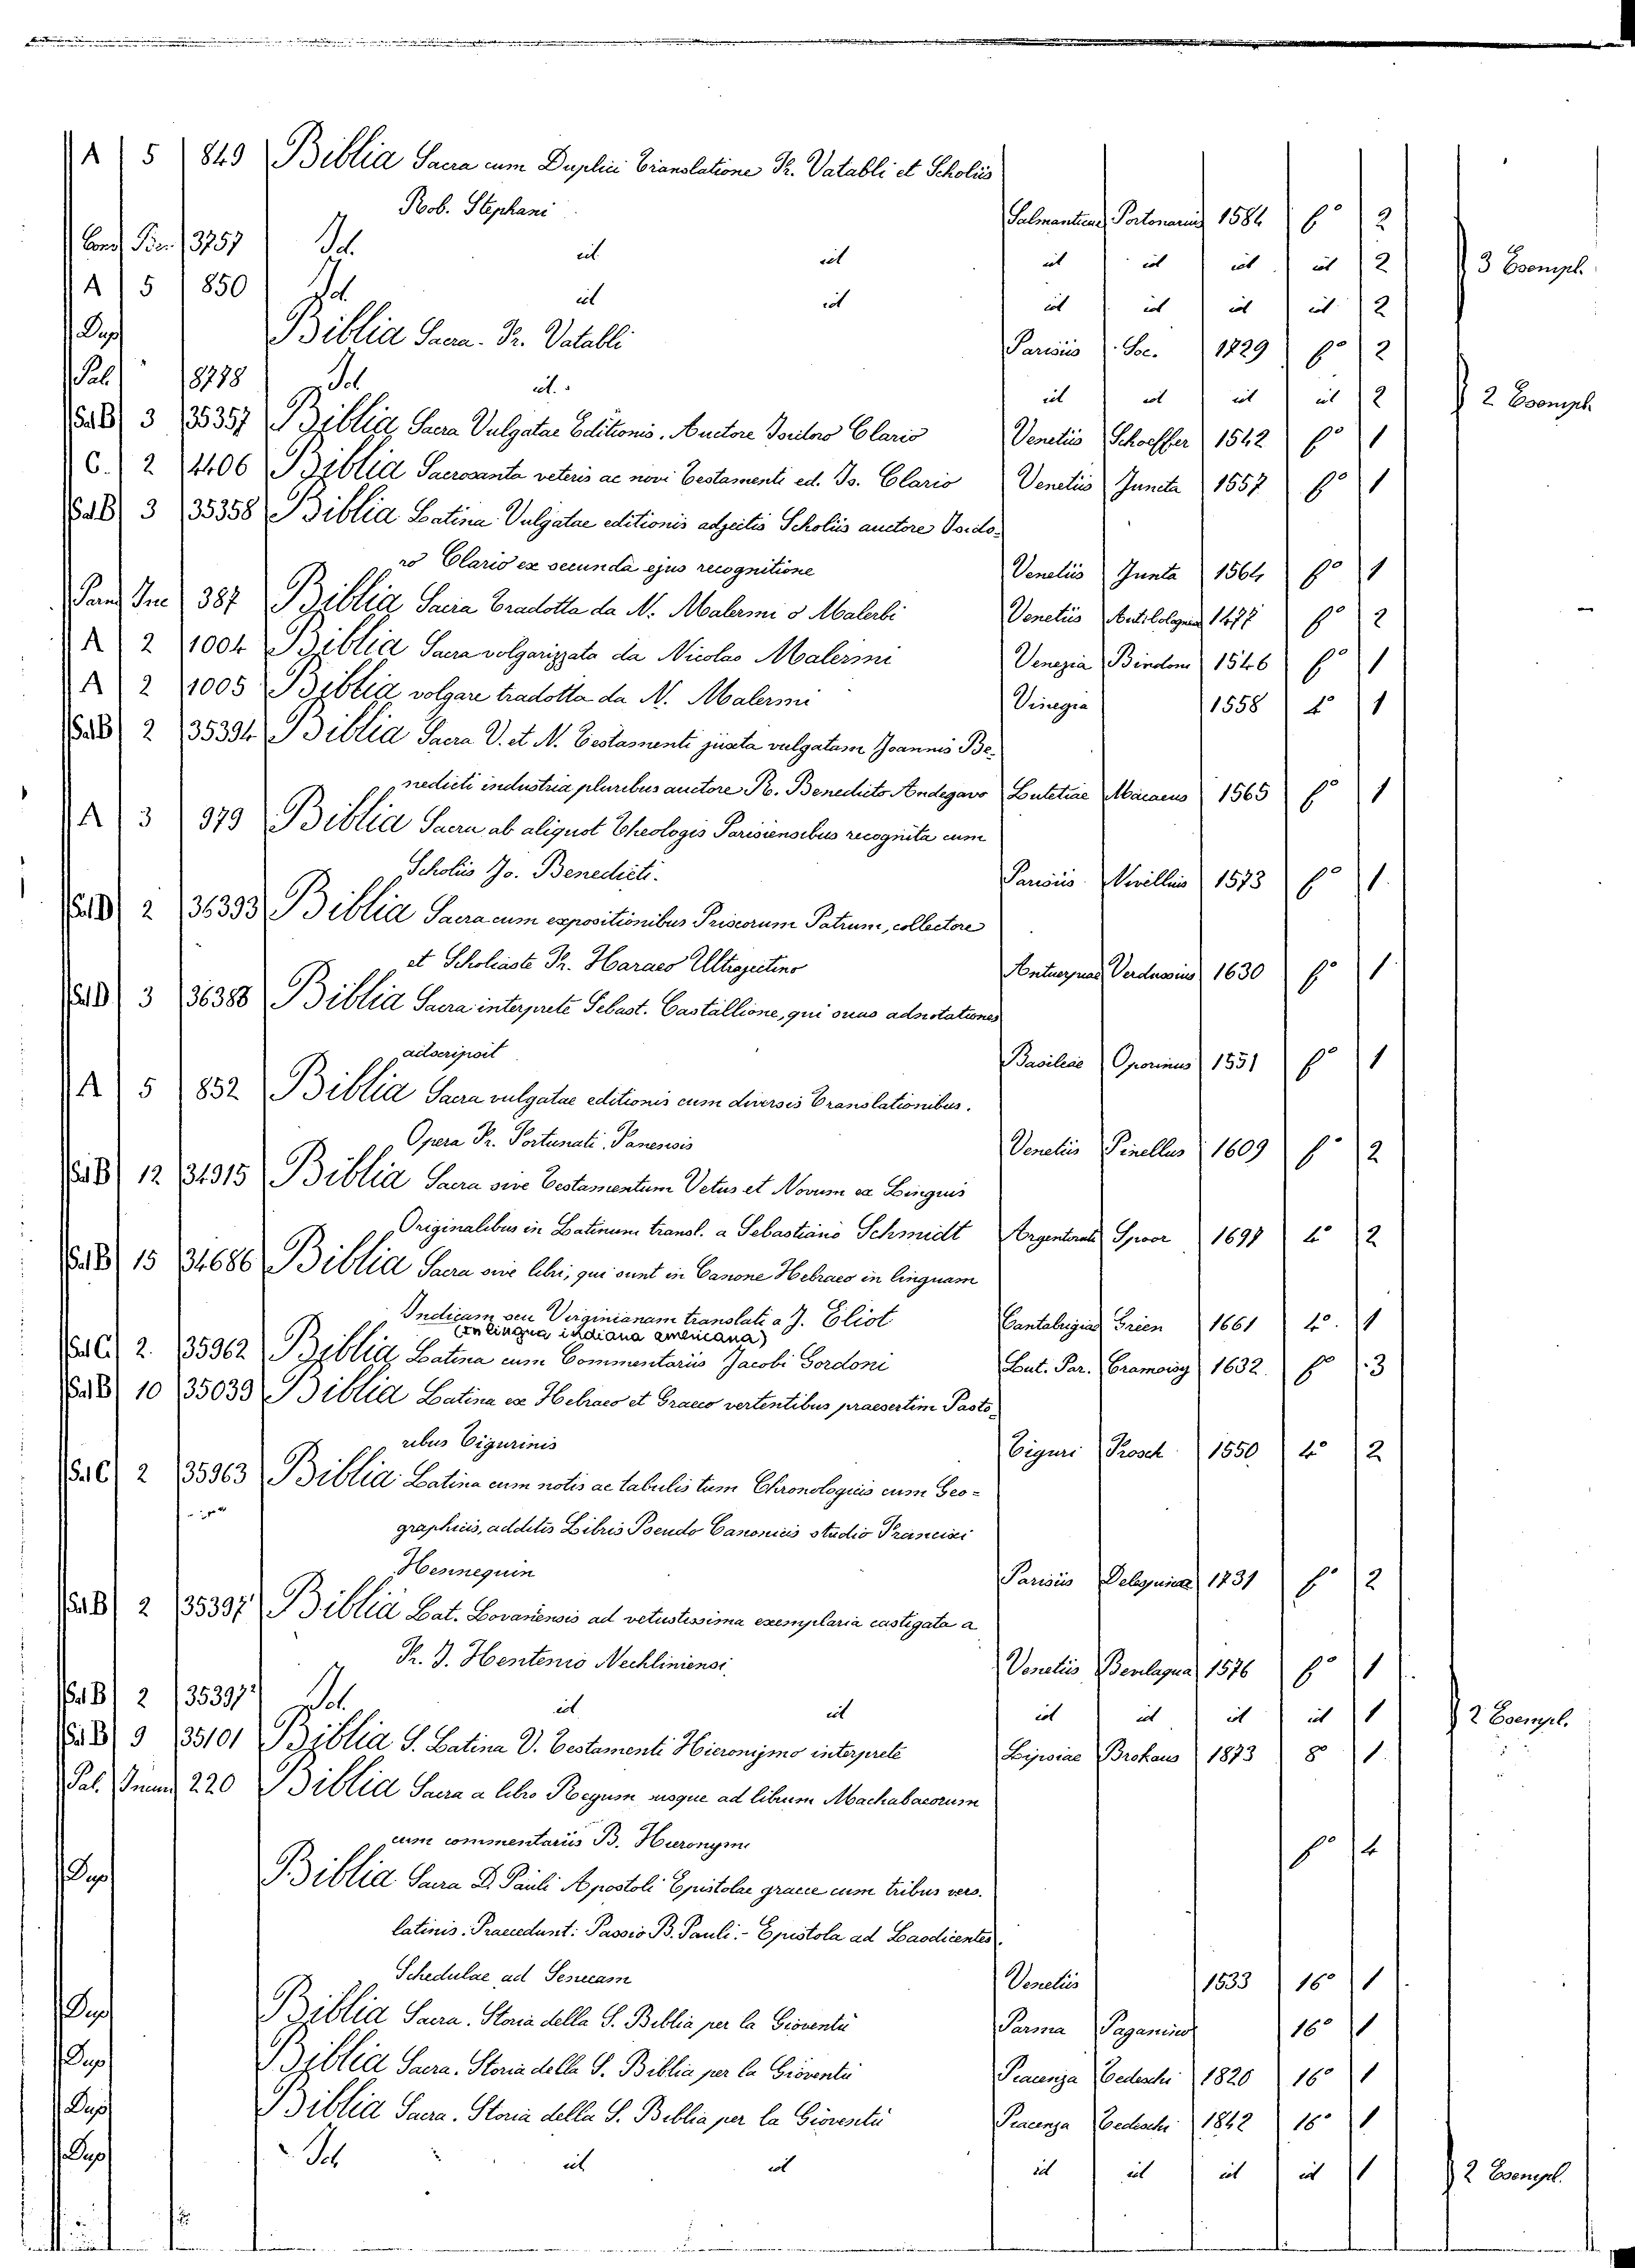 A 5 849 Biblia Sacra cum Duplici Translatione Fr. Vatabli et Scholiis
Rob. Stephani Salmanticae Portonariis 1584 fo 2
3757 Id. id id id id id id 2 3 Esempl.
A 5 850 Id. id id id id id id 2
Dup Biblia Sacra. Fr. Vatabli Parisiis Soc. 1729 fo 2
Pal. 8778 Id id. id id id id 2 2 Esempl.
Sal B 3 35357 Biblia Sacra Vulgatae Editionis. Auctore Isidoro Clario Venetiis Schoeffer 1542 fo 1
C. 2 4406 Biblia Sacrosanta veteris ac novi Testamenti ed. Is. Clario Venetiis Juncta 1557 fo 1
Sal B 3 35358 Biblia Latina Vulgatae editionis adjectis Scholiis auctore Isido-
ro Clario ex secunda ejus recognitione Venetiis Junta 1564 fo 1
Inc 387 Biblia Sacra Tradotta da N. Malermi o Malerbi Venetiis 1477 fo 2
A 2 1004 Biblia Sacra volgarizzata da Nicolao Malermi Venezia Bindoni 1546 fo 1
A 2 1005 Biblia volgare tradotta da N. Malermi Vinegia 1558 4o 1
Sal B 2 35394 Biblia Sacra V. et N. Testamenti juxta vulgatam Joannis Be-
nedicti industria pluribus auctore R. Benedicto Andegavo Lutetiae Macaeus 1565 fo 1
A 3 979 Biblia Sacra ab aliquot Theologis Parisiensibus recognita cum
Scholiis Jo. Benedicti. Parisiis Nivellius 1573 fo 1
Sal D 2 36393 Biblia Sacra cum expositionibus Priscorum Patrum, collectore
et Scholiaste Fr. Haraeo Ultrajectino Antuerpiae Verdussius 1630 fo 1
Sal D 3 36388 Biblia Sacra interprete Sebast. Castallione, qui suas adnotationes
adscripsit Basileae Oporinus 1551 fo 1
A 5 852 Biblia Sacra vulgatae editionis cum diversis Translationibus.
Opera Fr. Fortunati Fanensis Venetiis Pinellus 1609 fo 2
Sal B 12 34915 Biblia Sacra sive Testamentum Vetus et Novum ex Linguis
Originalibus in Latinum transl. a Sebastiano Schmidt Argentorati Spoor 1697 4o 2
Sal B 15 34686 Biblia Sacra sive libri, qui sunt in Canone Hebraeo in linguam
Indicam seu Virginianam translati a J. Eliot Cantabrigiae Grien 1661 4o. 1
(in lingua indiana americana)
Sal C 2. 35962 Biblia Latina cum Commentariis Jacobi Gordoni Lut. Par. Cramoisy 1632. fo 3
Sal B 10 35039 Biblia Latina ex Hebraeo et Graeco vertentibus praesertim Pasto-
ribus Tigurinis Tiguri Frosch 1550 4o 2
Sal C 2 35963 Biblia Latina cum notis ac tabulis tum Chronologicis cum Geo-
graphicis, additis Libris Pseudo Canonicis studio Francisci
Hennequin Parisiis 1731 fo 2
Sal B 2 35397 Biblia Lat. Lovaniensis ad vetustissima exemplaria castigata a
Fr. J. Hentenio Nechliniensi Venetiis Bevilaqua 1576 fo 1
Sal B 2 35397² Id. id id id id id id 1 2 Esempl.
Sal B 9 35101 Biblia S. Latina V. Testamenti Hieronymo interprete Lipsiae Brokaus 1873 8o 1
Pal. 220 Biblia Sacra a libro Regum usque ad librum Machabaeorum
cum commentariis B. Hieronymi fo 4
Dup Biblia Sacra D. Pauli Apostoli Epistolae graece cum tribus vers.
latinis. Praecedunt: Passio B. Pauli:- Epistola ad Laodicentes.
Schedulae ad Senecam Venetiis 1533 16o 1
Dup Biblia Sacra. Storia della S. Bibbia per la Gioventù Parma Paganino 16o 1
Dup Biblia Sacra. Storia della S. Bibbia per la Gioventù Piacenza Tedeschi 1820 16o 1
Dup Biblia Sacra. Storia della S. Bibbia per la Gioventù Piacenza Tedeschi 1842 16o 1
Dup Id id id id id id id 1 2 Esempl.